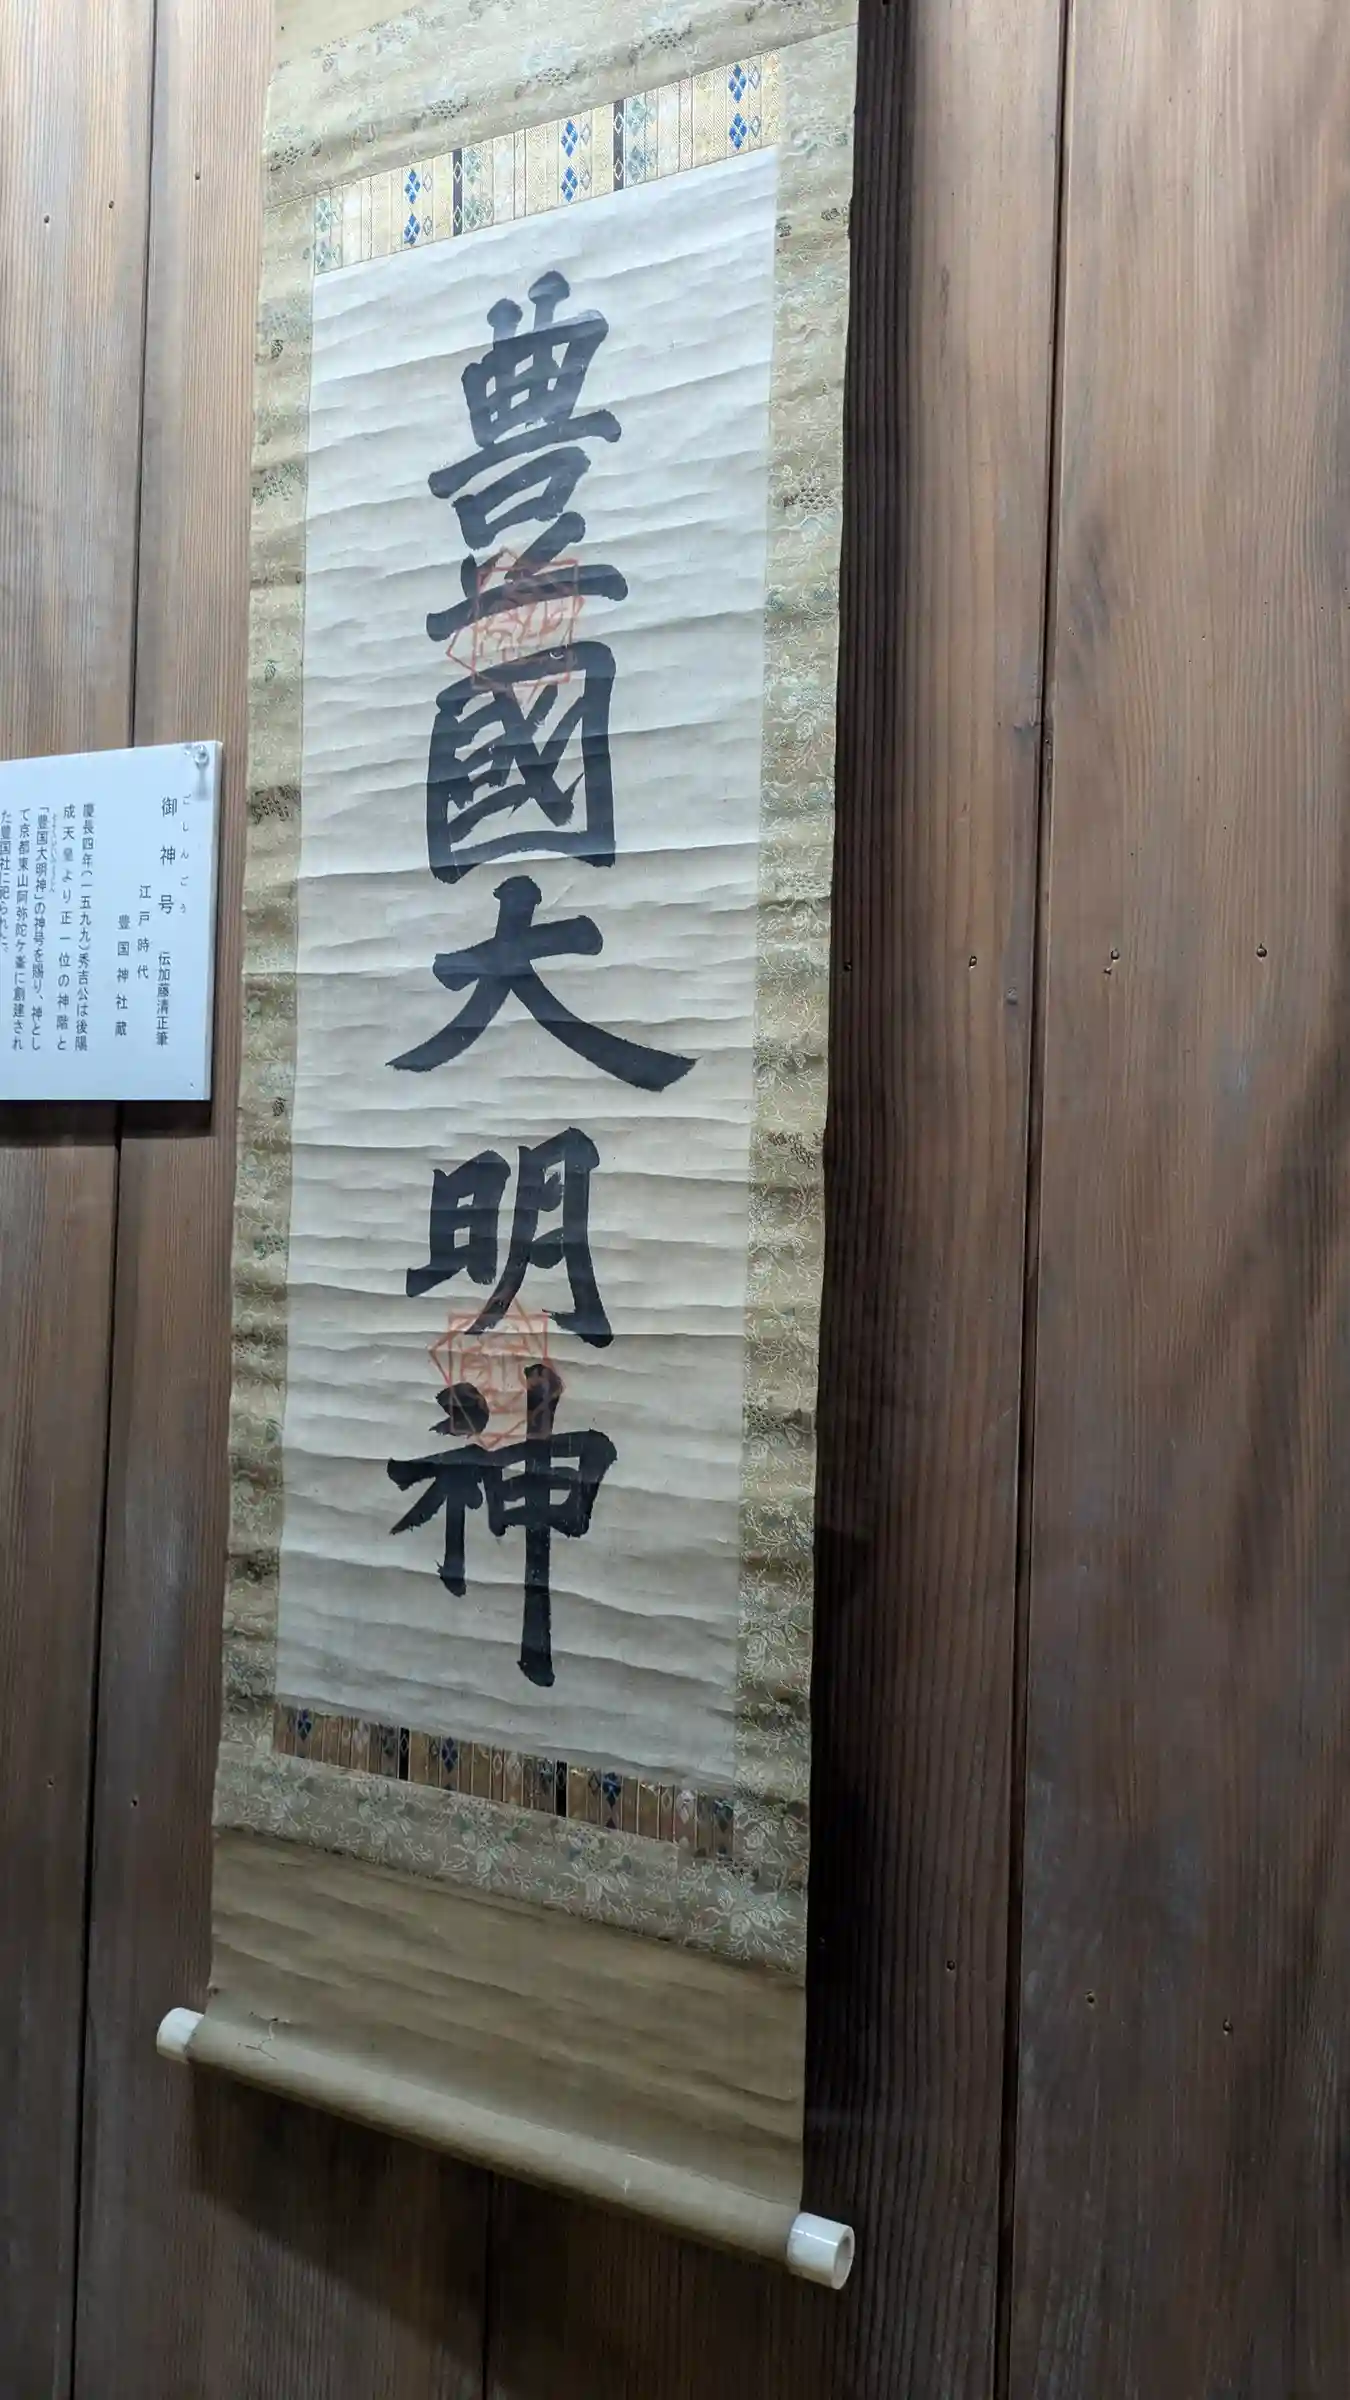 豊國大明神
御神号　伝加藤清正筆
ごしんごう
江戸時代
豊国神社蔵
慶長四年（一五九九）秀吉公は後陽
成天皇より正一位の神階と
「豊国大明神」の神号を賜り、神とし
て京都東山阿弥陀ケ峯に創建され
た豊国社に祀られた。